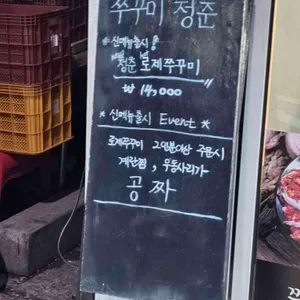 쭈꾸미 청춘
* 신메뉴출시!
청춘 로제쭈꾸미
₩ 14,000
* 신메뉴출시 Event *
로제쭈꾸미 2인분이상 주문시
계란찜, 우동사리가
공짜